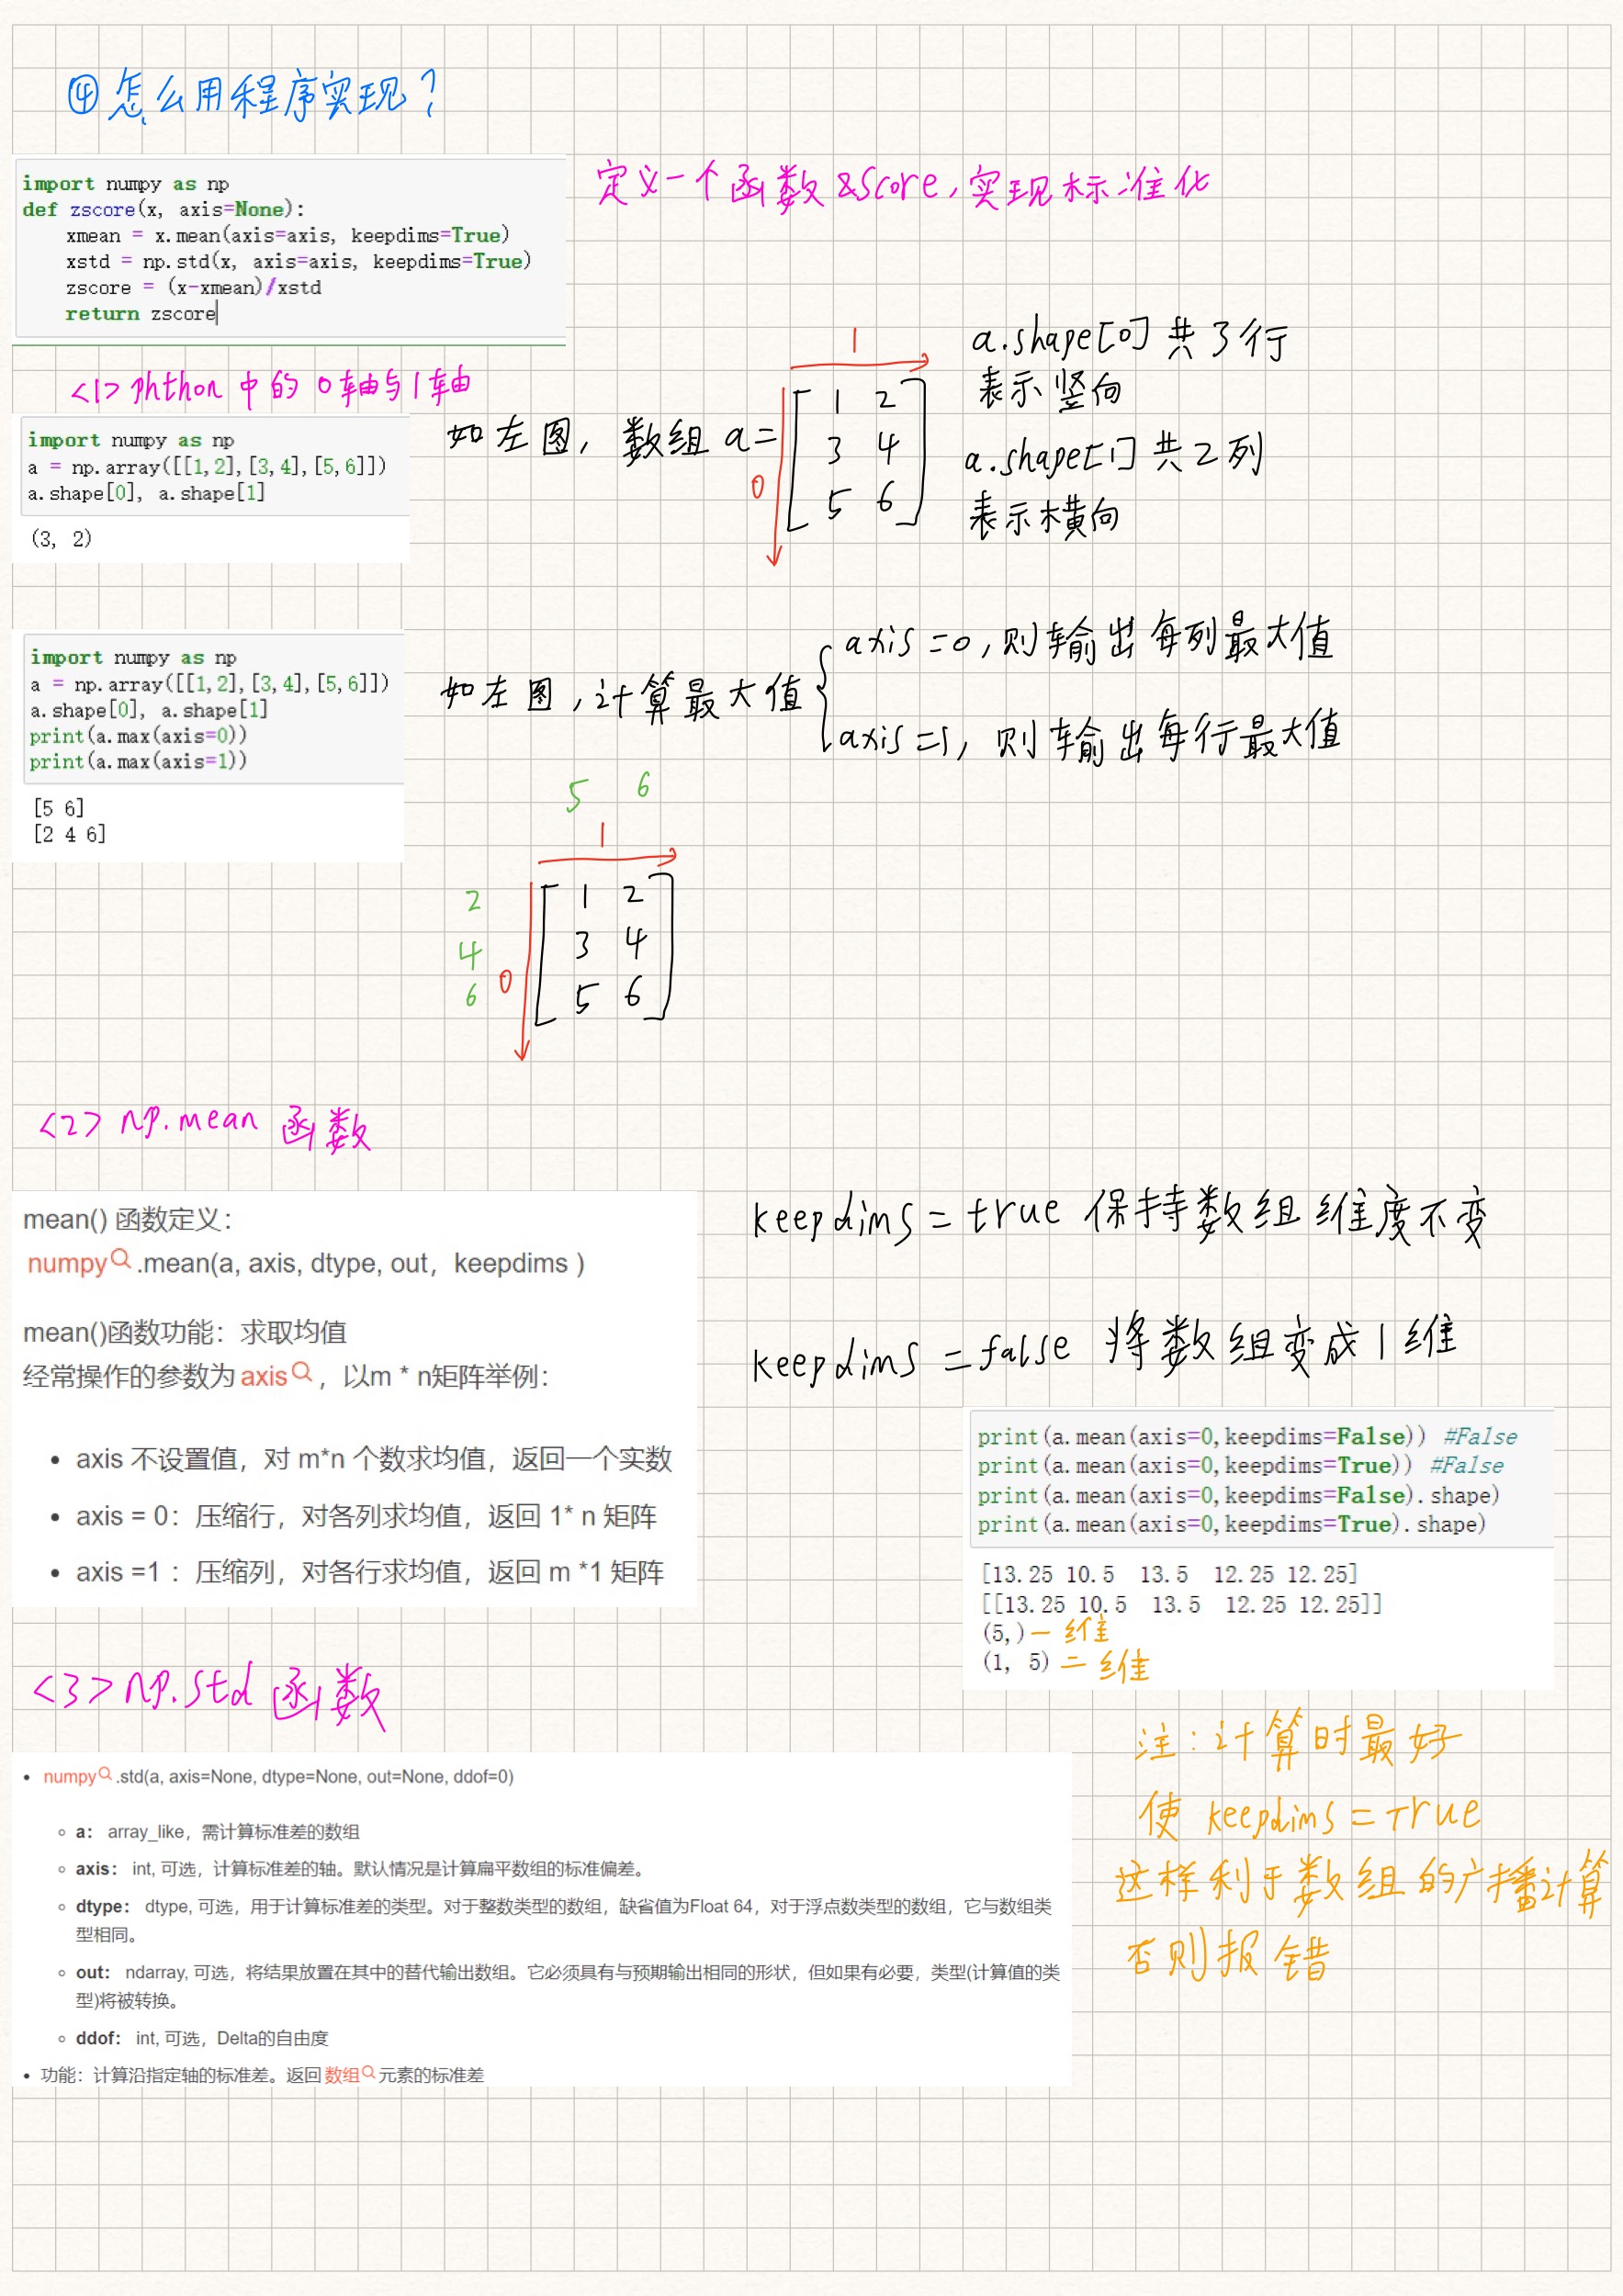 ④怎么用程序实现？
import numpy as np
def zscore(x, axis=None):
xmean = x.mean(axis=axis, keepdims=True)
xstd = np.std(x, axis=axis, keepdims=True)
zscore = (x-xmean)/xstd
return zscore
定义一个函数zscore,实现标准化
<1> Phthon 中的 0轴与1轴
import numpy as np
a = np.array([[1,2],[3,4],[5,6]])
a.shape[0], a.shape[1]
(3, 2)
如左图, 数组 a=
1
0
1 2
3 4
5 6
a.shape[0] 共3行
表示竖向
a.shape[1] 共2列
表示横向
import numpy as np
a = np.array([[1,2],[3,4],[5,6]])
a.shape[0], a.shape[1]
print(a.max(axis=0))
print(a.max(axis=1))
[5 6]
[2 4 6]
如左图,计算最大值
axis=0,则输出每列最大值
axis=1,则输出每行最大值
5 6
1
2
4
6
0
1 2
3 4
5 6
<2> np.mean 函数
mean() 函数定义：
numpy.mean(a, axis, dtype, out，keepdims )
mean()函数功能：求取均值
经常操作的参数为axis，以m * n矩阵举例：
• axis 不设置值，对 m*n 个数求均值，返回一个实数
• axis = 0：压缩行，对各列求均值，返回 1* n 矩阵
• axis =1 ：压缩列，对各行求均值，返回 m *1 矩阵
keepdims=true 保持数组维度不变
keepdims=false 将数组变成1维
print(a.mean(axis=0,keepdims=False)) #False
print(a.mean(axis=0,keepdims=True)) #False
print(a.mean(axis=0,keepdims=False).shape)
print(a.mean(axis=0,keepdims=True).shape)
[13.25 10.5 13.5 12.25 12.25]
[[13.25 10.5 13.5 12.25 12.25]]
(5,) 一维
(1, 5) 二维
<3> np.std 函数
• numpy.std(a, axis=None, dtype=None, out=None, ddof=0)
◦ a： array_like，需计算标准差的数组
◦ axis： int, 可选，计算标准差的轴。默认情况是计算扁平数组的标准偏差。
◦ dtype： dtype, 可选，用于计算标准差的类型。对于整数类型的数组，缺省值为Float 64，对于浮点数类型的数组，它与数组类
型相同。
◦ out： ndarray, 可选，将结果放置在其中的替代输出数组。它必须具有与预期输出相同的形状，但如果有必要，类型(计算值的类
型)将被转换。
◦ ddof： int, 可选，Delta的自由度
• 功能：计算沿指定轴的标准差。返回数组元素的标准差
注:计算时最好
使 keepdims=True
这样利于数组的广播计算
否则报错